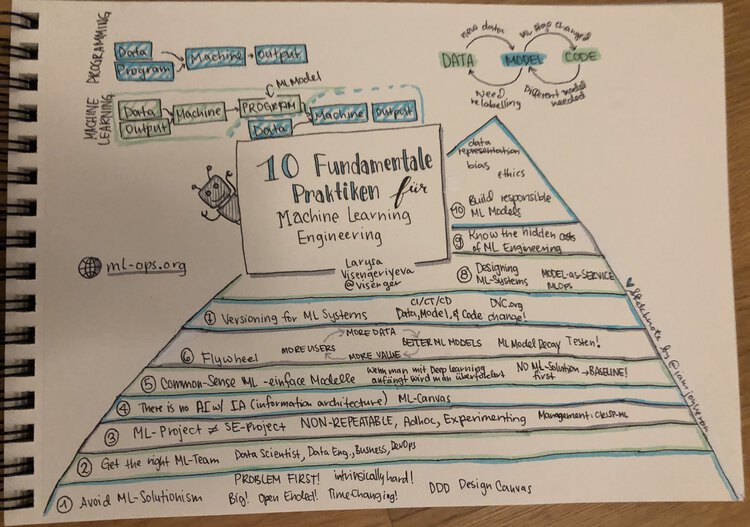 PROGRAMMING
Data
Program
Machine
Output
MACHINE LEARNING
Data
Output
Machine
PROGRAM
ML Model
Data
Machine
Output
new data
DATA
MODEL
CODE
Need relabelling
Different model needed
10 Fundamentale
Praktiken für
Machine Learning
Engineering
Larysa
Visengeriyeva
@visenger
ml-ops.org
data
representation
bias
ethics
10 Build responsible
ML Models
9 Know the hidden costs
of ML Engineering
8 Designing
ML-Systems
MODEL-AS-SERVICE
MLOps
7 Versioning for ML Systems
CI/CT/CD
Data, Model, & Code change!
DVC.org
6 Flywheel
MORE DATA
MORE USERS
BETTER ML MODELS
MORE VALUE
ML Model Decay Testen!
5 Common-Sense ML - einfache Modelle
Wenn man mit Deep learning
anfängt wird man überfordert
NO ML-Solution → BASELINE!
first
4 There is no AI w/ IA (information architecture) ML-Canvas
3 ML-Project ≠ SE-Project NON-REPEATABLE, Adhoc, Experimenting Management: CRISP-ML
2 Get the right ML-Team Data Scientist, Data Eng., Business, DevOps
PROBLEM FIRST! intrinsically hard!
1 Avoid ML-Solutionism Big! Open Ended! Time-Changing! DDD Design Canvas
Sketchnote by